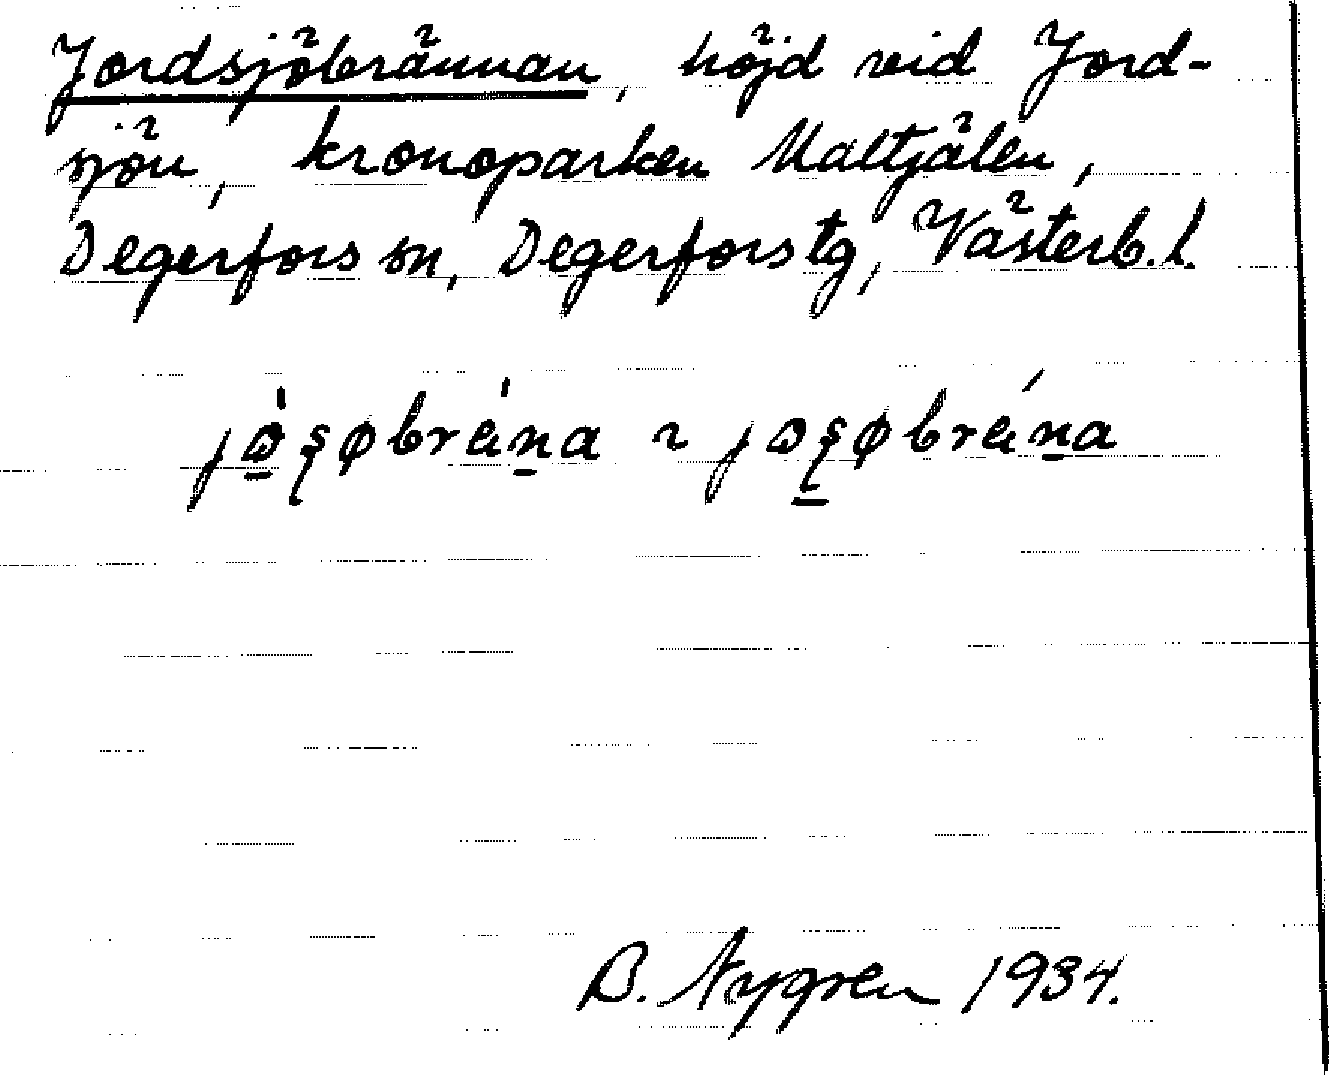 Jordsjöbrännan, höjd vid Jord-
sjön, kronoparken Maltjälen,
Degerfors sn, Degerfors tg, Västerb. l.
B. Nygren 1934.